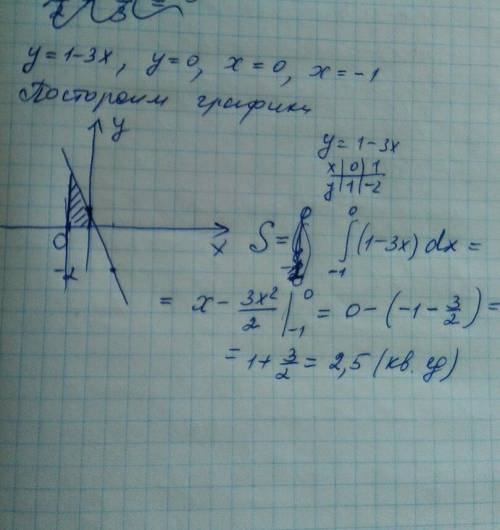 y = 1-3x, y=0, x=0, x=-1
Постороим графики
y
y = 1-3x
x | 0 | 1
y | 1 | -2
0
x
S = ∫_{-1}^{0} (1-3x) dx =
= x - \frac{3x^2}{2} |_{-1}^{0} = 0 - (-1 - \frac{3}{2}) =
= 1 + \frac{3}{2} = 2,5 (кв. ед)